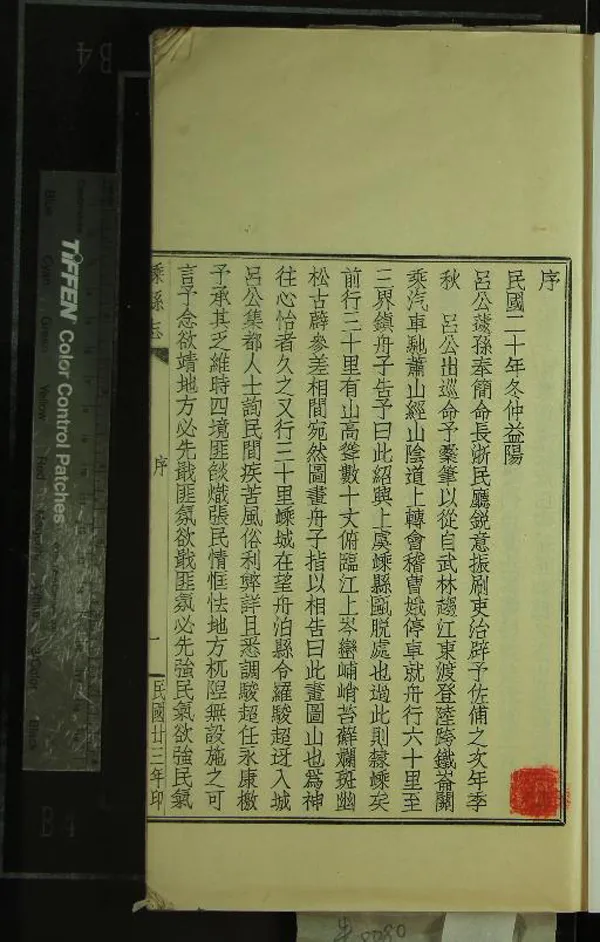 序
民國二十年冬仲益陽
呂公蘧孫奉簡命長浙民廳鋭意振刷吏治辟予佐僃之次年季
秋　呂公出巡命予橐筆以從自武林趨江東渡登陸跨鐵崙關
乘汽車馳蕭山經山陰道上轉會稽曹娥停車就舟行六十里至
三界鎮舟子告予曰此紹興上虞嵊縣甌脱處也過此則隸嵊矣
前行三十里有山高聳數十丈俯臨江上岑巒崅峭苔蘚斕斑幽
松古薜參差相間宛然圖畫舟子指以相告曰此畫圖山也爲神
往心怡者久之又行三十里嵊城在望舟泊縣令羅駿超迓入城
呂公集都人士詢民間疾苦風俗利弊詳且悉調駿超任永康檄
予承其乏維時四境匪燄熾張民情恇怯地方杌隉無設施之可
言予念欲靖地方必先戢匪氛欲戢匪氛必先強民氣欲強民氣
嵊縣志
序
一
民國廿三年印
TIFFEN Color Control Patches
Blue
Cyan
Green
Yellow
Red
Black
B4